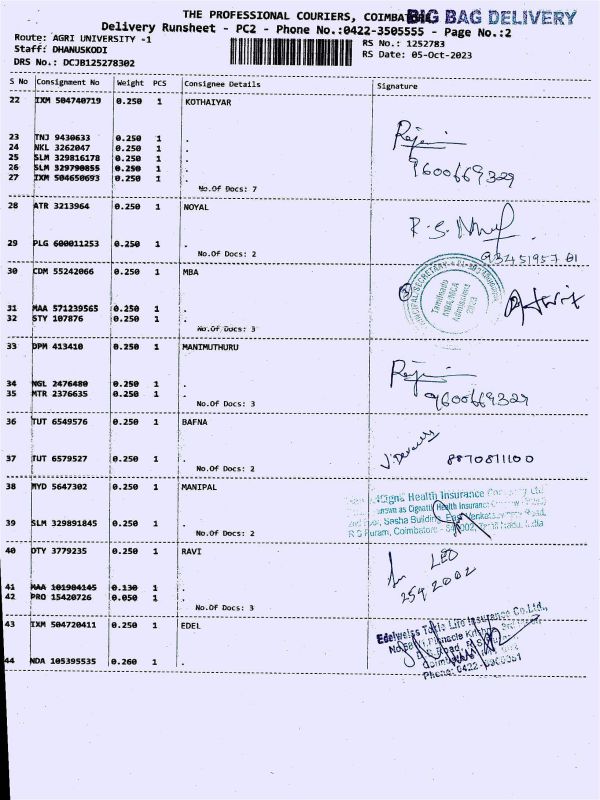 THE PROFESSIONAL COURIERS, COIMBAT
BIG BAG DELIVERY
Delivery Runsheet - PC2 - Phone No.:0422-3505555 - Page No.:2
Route: AGRI UNIVERSITY -1
RS No.: 1252783
Staff: DHANUSKODI
RS Date: 05-Oct-2023
DRS No.: DCJB125278302
S No Consignment No Weight PCS Consignee Details Signature
22 IXM 504740719 0.250 1 KOTHAIYAR
23 TNJ 9430633 0.250 1 .
24 NKL 3262047 0.250 1 .
25 SLM 329816178 0.250 1 .
26 SLM 329790855 0.250 1 .
27 IXM 504650693 0.250 1 .
No.Of Docs: 7
9600669329
28 ATR 3213964 0.250 1 NOYAL
R.S.
29 PLG 600011253 0.250 1 .
No.Of Docs: 2
30 CDM 55242066 0.250 1 MBA
31 MAA 571239565 0.250 1 .
32 STY 107876 0.250 1 .
No.Of Docs: 3
Tamilnadu
MBA/MCA
Admissions
2023
33 DPM 413410 0.250 1 MANIMUTHURU
34 NGL 2476480 0.250 1 .
35 MTR 2376635 0.250 1 .
No.Of Docs: 3
9600669329
36 TUT 6549576 0.250 1 BAFNA
37 TUT 6579527 0.250 1 .
No.Of Docs: 2
8870811100
38 MYD 5647302 0.250 1 MANIPAL
Health Insurance
known as CignaTTK Health Insurance
Sasha Building,
R S Puram, Coimbatore
39 SLM 329891845 0.250 1 .
No.Of Docs: 2
40 DTY 3779235 0.250 1 RAVI
LEO
2592002
41 MAA 101984145 0.130 1 .
42 PRO 15420726 0.050 1 .
No.Of Docs: 3
43 IXM 504720411 0.250 1 EDEL
Edelweiss Tokio Life Insurance Co.Ltd.,
44 NDA 105395535 0.260 1 .